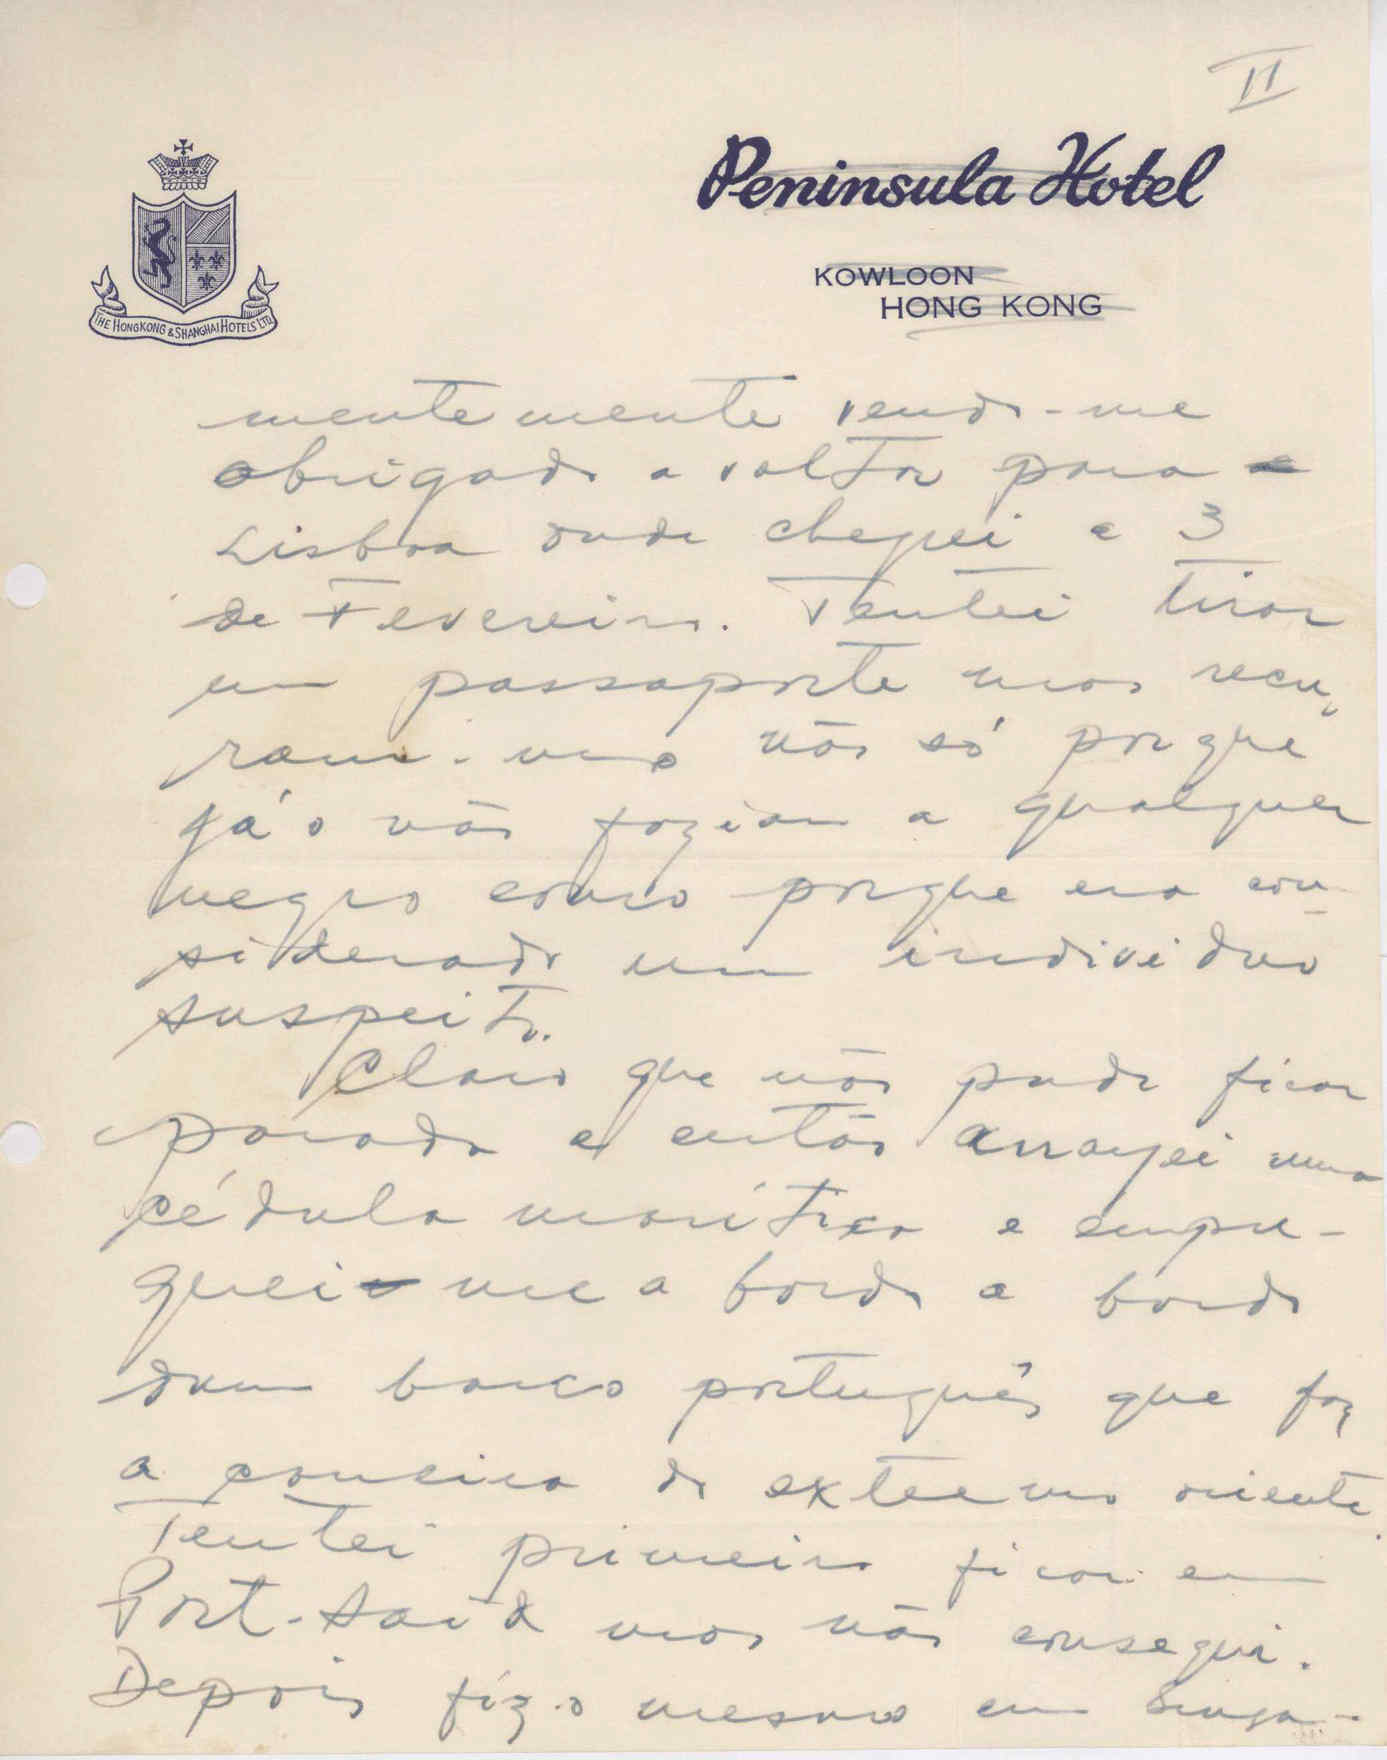 II
Peninsula Hotel
KOWLOON
HONG KONG
THE HONGKONG & SHANGHAI HOTELS LTD.
mentemente vendo-me
obrigado a voltar para
Lisboa onde cheguei a 3
de Fevereiro. Tentei tirar
um passaporte mas recu-
ram-mo não só porque
já o não faziam a qualquer
negro como porque era con-
siderado um individuo
suspeito.
Claro que não pude ficar
parado e então arranjei uma
cédula marítima e empre-
guei-me a bordo a bordo
dum barco português que faz
a carreira do extremo oriente.
Tentei primeiro ficar em
Port-Said mas não consegui.
Depois fiz o mesmo em Singa-